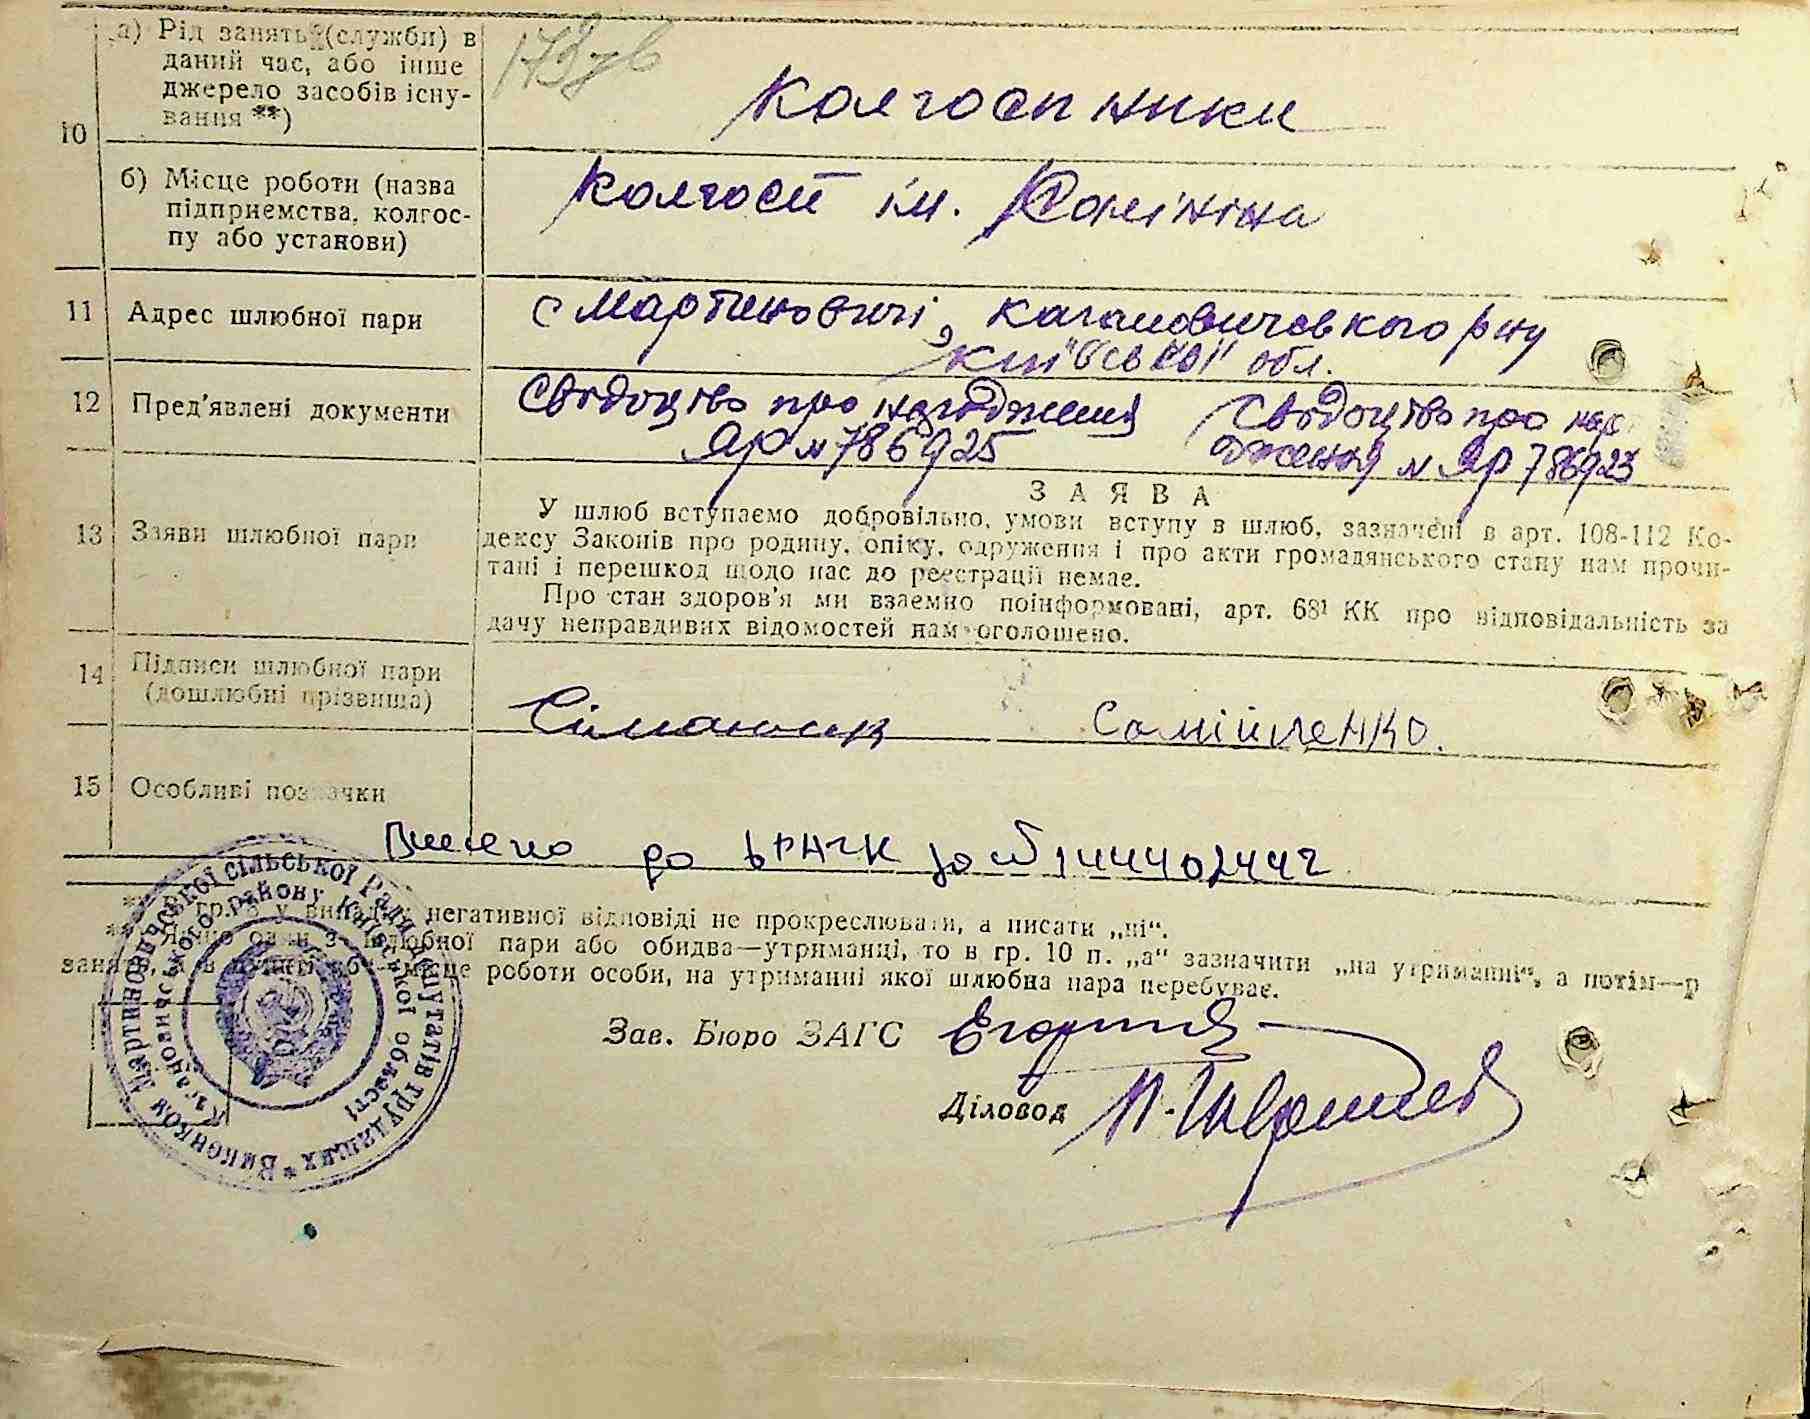 10
а) Рід занять (служби) в
даний час, або інше
джерело засобів існу-
вання **)
Колгоспники
б) Місце роботи (назва
підприємства, колгос-
пу або установи)
Колгосп ім.
11
Адрес шлюбної пари
с Мартиновичі, Кагановичевського р-ну
Київської обл.
12
Пред'явлені документи
Свідоцтво про народження
ЯР № 786925
Свідоцтво про нар
дження № ЯР 786923
13
Заяви шлюбної пари
ЗАЯВА
У шлюб вступаємо добровільно, умови вступу в шлюб, зазначені в арт. 108-112 Ко-
дексу Законів про родину, опіку, одруження і про акти громадянського стану нам прочи-
тані і перешкод щодо нас до реєстрації немає.
Про стан здоров'я ми взаємно поінформовані, арт. 68¹ КК про відповідальність за
дачу неправдивих відомостей нам оголошено.
14
Підписи шлюбної пари
(дошлюбні прізвища)
Самійленко.
15
Особливі позначки
Внесено до ДРАЦС за №
негативної відповіді не прокреслювати, а писати „ні“.
шлюбної пари або обидва—утриманці, то в гр. 10 п. „а“ зазначити „на утриманні“, а потім—р
місце роботи особи, на утриманні якої шлюбна пара перебуває.
Виконком Мартиновичської сільської Ради депутатів трудящих *
Кагановичського району Київської області
Зав. Бюро ЗАГС
Діловод